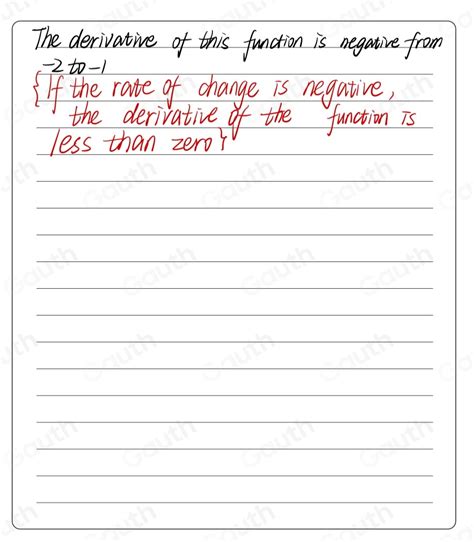 The derivative of this function is negative from
-2 to -1
{If the rate of change is negative,
the derivative of the function is
less than zero}
Gauth